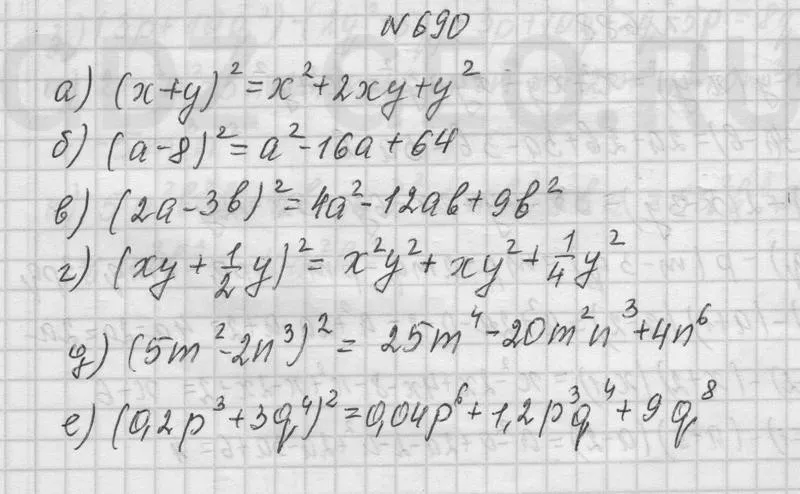 №690
а) (x+y)² = x² + 2xy + y²
б) (a-8)² = a² - 16a + 64
в) (2a - 3b)² = 4a² - 12ab + 9b²
г) (xy + 1/2 y)² = x²y² + xy² + 1/4 y²
д) (5m² - 2n³)² = 25m⁴ - 20m²n³ + 4n⁶
е) (0,2p³ + 3q⁴)² = 0,04p⁶ + 1,2p³q⁴ + 9q⁸